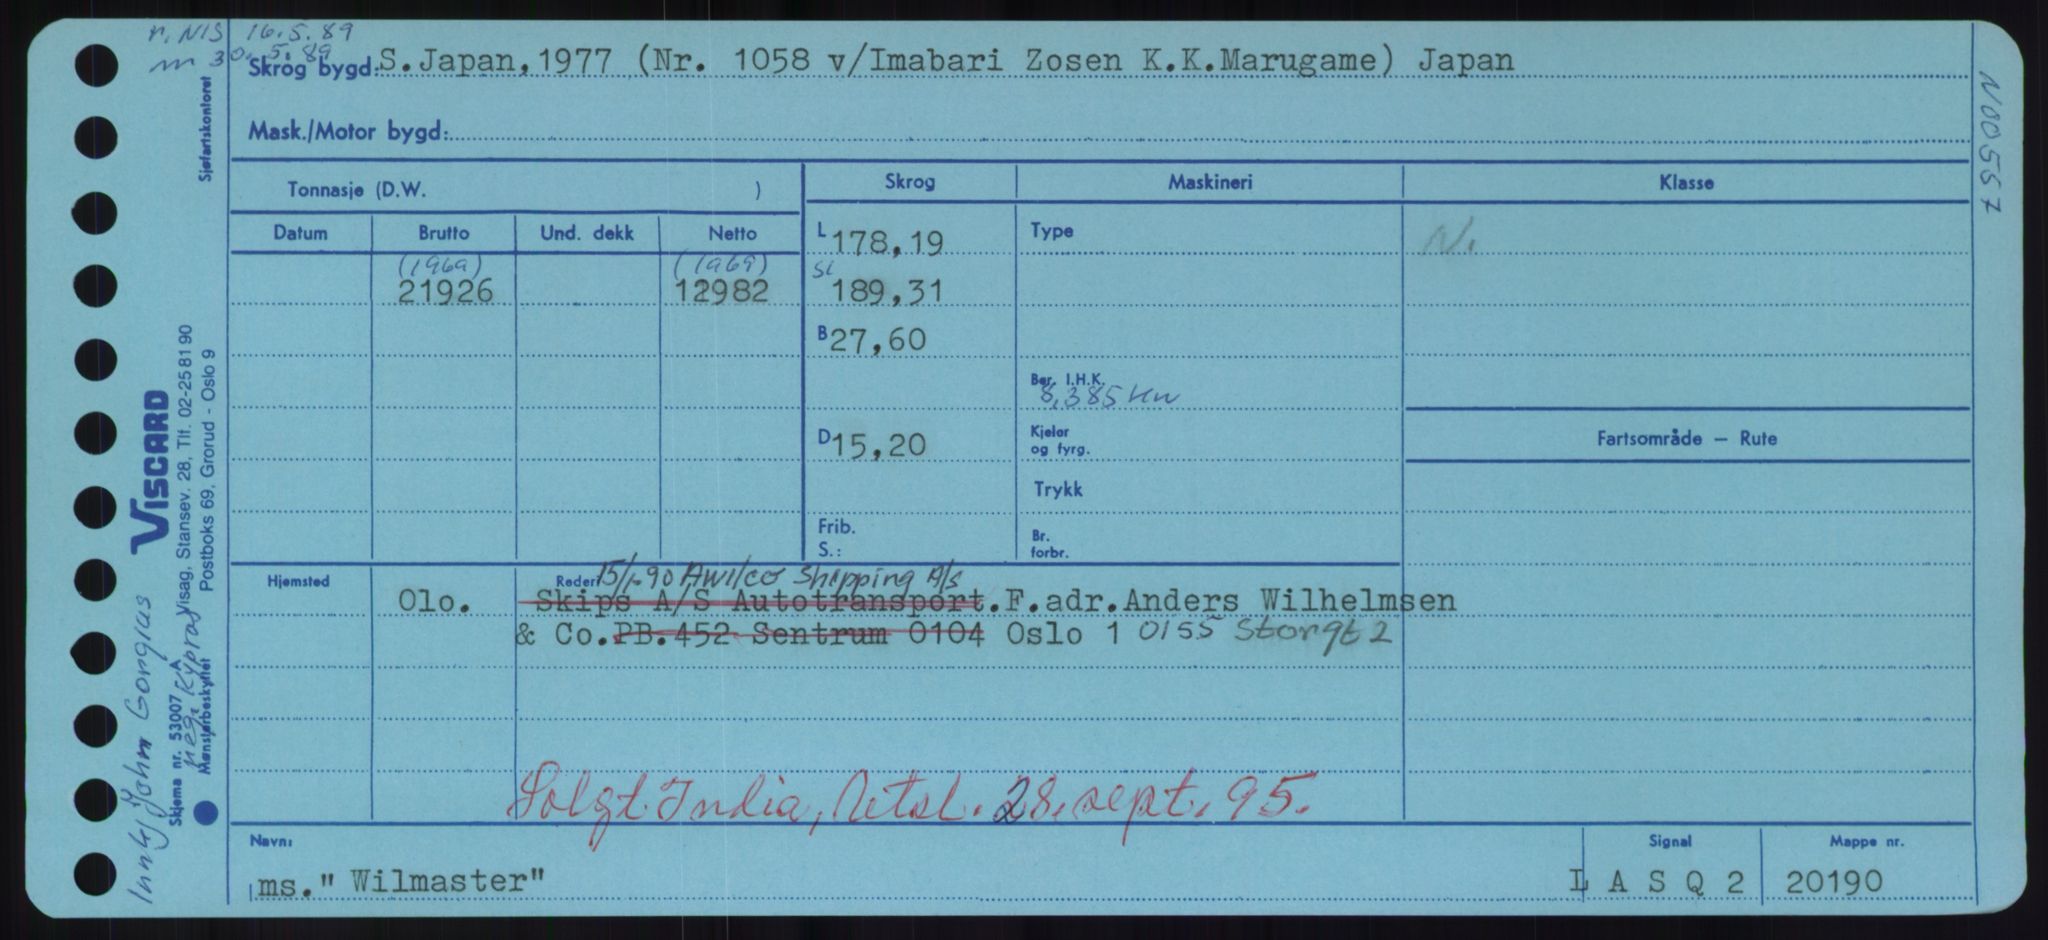 r. NIS 16.5.89
m 30.5.89
Skrog bygd: S.Japan,1977 (Nr. 1058 v/Imabari Zosen K.K.Marugame) Japan
Mask./Motor bygd:
N00557
Tonnasje (D.W. )
Skrog
Maskineri
Klasse
Datum
Brutto
Und. dekk
Netto
L 178,19
Type
N.
(1969)
(1969)
21926
12982
SL 189,31
B 27,60
Ber. I.H.K.
8,385 KW
D 15,20
Kjeler
og fyrg.
Fartsområde — Rute
Trykk
Frib.
S.:
Br.
forbr.
Hjemsted
Rederi 15/1-90 Awilco Shipping A/S
Olo.
Skips A/S Autotransport.F.adr.Anders Wilhelmsen
& Co.PB.452 Sentrum 0104 Oslo 1 0155 Storgt 2
Solgt India, Retsl. 28. sept. 95.
Navn:
Signal
Mappe nr.
ms." Wilmaster"
L A S Q 2
20190
Sjøfartskontoret
VISCARD
Visag, Stansev. 28, Tlf. 02-25 81 90
Postboks 69, Grorud - Oslo 9
Skjema nr. 53007 A
Mønsterbeskyttet
John Gorgias
reg. Kypros